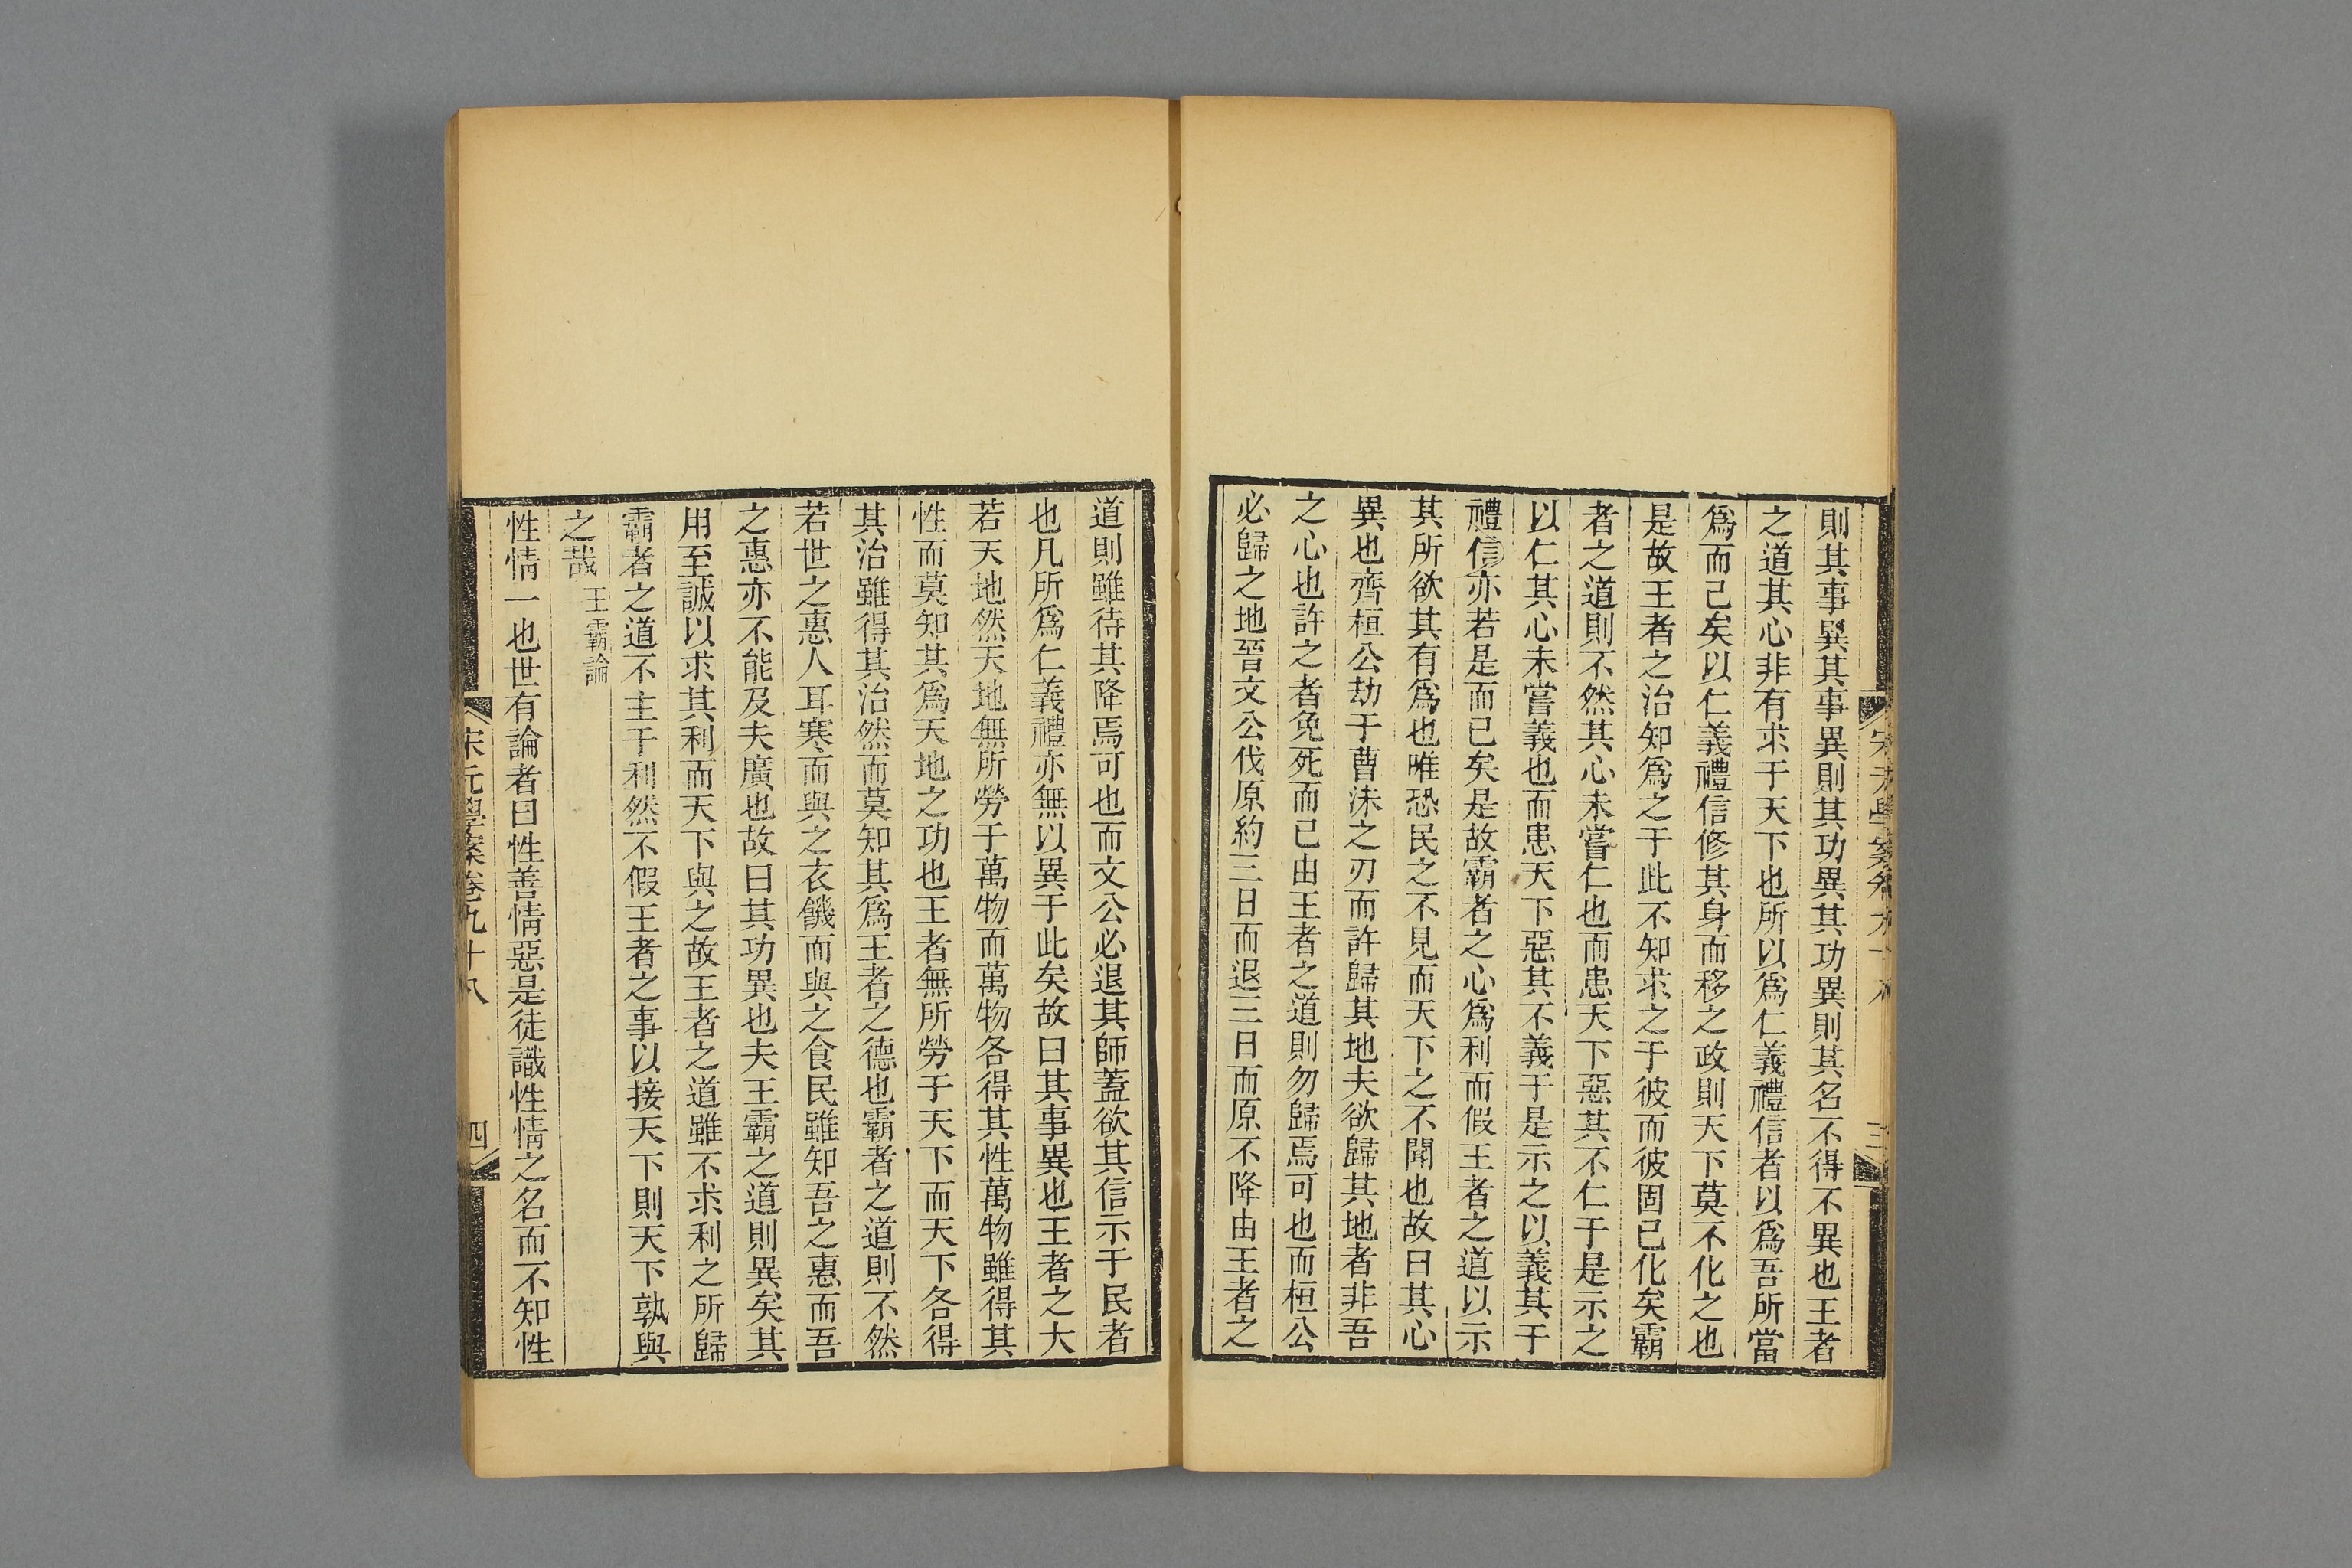 則其事異其事異則其功異其功異則其名不得不異也王者
之道其心非有求于天下也所以爲仁義禮信者以爲吾所當
爲而已矣以仁義禮信修其身而移之政則天下莫不化之也
是故王者之治知爲之于此不知求之于彼而彼固已化矣霸
者之道則不然其心未嘗仁也而患天下惡其不仁于是示之
以仁其心未嘗義也而患天下惡其不義于是示之以義其于
禮信亦若是而已矣是故霸者之心爲利而假王者之道以示
其所欲其有爲也唯恐民之不見而天下之不聞也故曰其心
異也齊桓公劫于曹沬之刃而許歸其地夫欲歸其地者非吾
之心也許之者免死而已由王者之道則勿歸焉可也而桓公
必歸之地晉文公伐原約三日而退三日而原不降由王者之
道則雖待其降焉可也而文公必退其師蓋欲其信示于民者
也凡所爲仁義禮亦無以異于此矣故曰其事異也王者之大
若天地然天地無所勞于萬物而萬物各得其性萬物雖得其
性而莫知其爲天地之功也王者無所勞于天下而天下各得
其治雖得其治然而莫知其爲王者之德也霸者之道則不然
若世之惠人耳寒而與之衣饑而與之食民雖知吾之惠而吾
之惠亦不能及夫廣也故曰其功異也夫王霸之道則異矣其
用至誠以求其利而天下與之故王者之道雖不求利之所歸
霸者之道不主于利然不假王者之事以接天下則天下孰與
之哉王霸論
性情一也世有論者曰性善情惡是徒識性情之名而不知性
宋元學案卷九十八
四